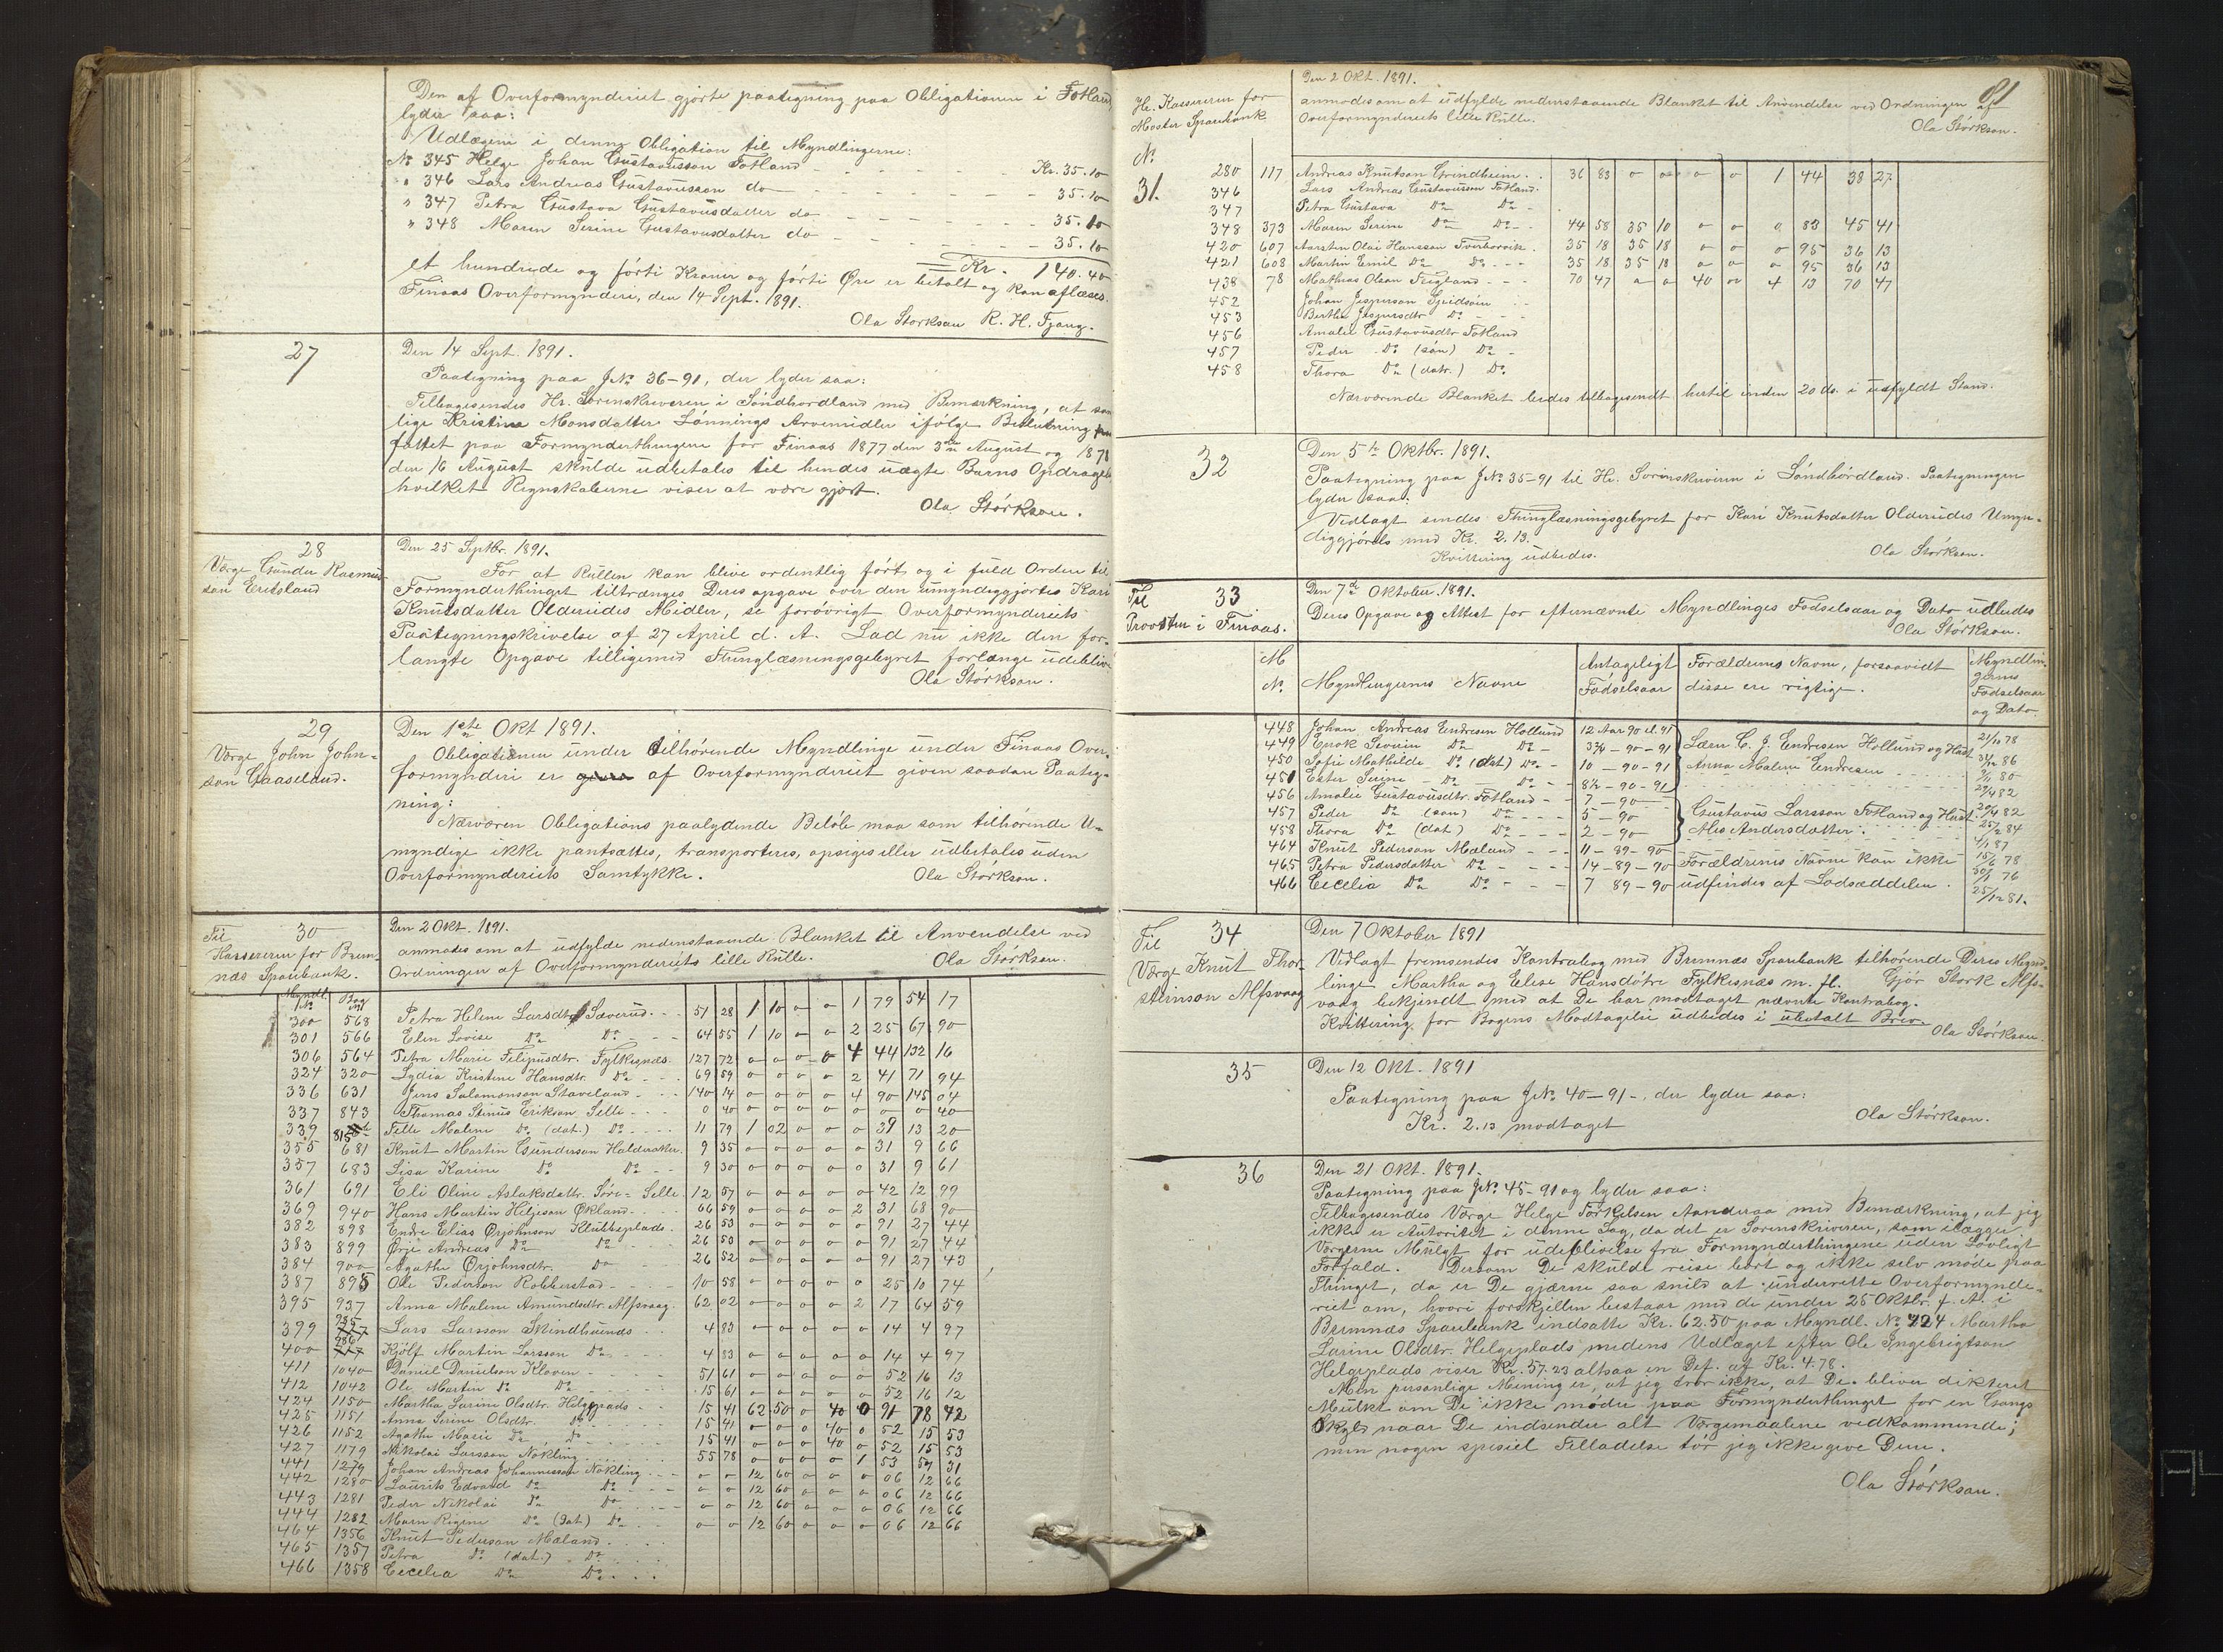 Den af Overformynderiet gjorte paategning paa Obligationen i Fotland
lyder saa:
Udlægene i denne Obligation til Myndlingerne:
No 345 Helge Johan Gustavussøn Fotland - - - - - - Kr. 35.10
" 346 Lars Andreas Gustavusson do - - - - - - 35.10
" 347 Petra Gustava Gustavusdatter do - - - - - - 35.10
" 348 Maren Serine Gustavusdatter do - - - - - - 35.10
Kr. 140.40
et hundrede og førti Kroner og førti Øre er betalt og kan aflæses.
Finaas Overformynderi, den 14 Sept. 1891.
Ola Størkson R. H. Fjang.
27
Den 14 Sept. 1891.
Paategning paa JNo 36-91, der lyder saa:
Tilbagesendes Hr. Sorenskriveren i Søndhordland med Bemærkning, at
lige Kristine Monsdatter Lønnings Arvemidler ifølge Beslutning
fattet paa Formynderthingene for Finaas 1877 den 3die August og 1878
den 16 August skulde udbetales til hendes uægte Barns Opdragelse
hvilket Regnskaberne viser at være gjort.
Ola Størkson.
28
Værge Gunder Rasmus-
son Eritsland
Den 25 Septbr. 1891.
For at Rullen kan blive ordentlig ført og i fuld Orden til
Formynderthinget tiltrænges Deres opgave over den umyndiggjortes Kari
Knutsdatter Oldereides Midler, se forøvrigt Overformynderiets
Paategningskrivelse af 27 April d. A. Lad nu ikke den for-
langte Opgave tilligemed Thinglæsningsgebyret forlænge udeblive
Ola Størkson.
29
Værge John John-
son Gaaseland.
Den 1ste Okt 1891.
Obligationen under tilhørende Myndlinge under Finaas Over-
formynderi er af Overformynderiet given saadan Paateg-
ning:
Nærværen Obligations paalydende Beløb maa som tilhørende U-
myndige ikke pantsættes, transporteres, opsiges eller udbetales uden
Overformynderiets Samtykke. Ola Størkson.
Til 30
Kassereren for Brem-
næs Sparebank.
Den 2 Okt. 1891.
anmodes om at udfylde nedenstaaende Blanket til Anvendelse ved
Ordningen af Overformynderiets lille Rulle. Ola Størkson.
Myndl. No Bog No
300 568 Petra Helene Larsdtr Sæverud. 51 28 1 10 o o 1 79 54 17
301 566 Elen Lovise Do Do 64 55 1 10 o o 2 25 67 90
306 564 Petra Marie Filipusdtr. Fylkesnæs. 127 72 o o o o 4 44 132 16
324 320 Lydia Kristine Hansdtr. Do 69 59 o o o o 2 41 71 94
336 631 Jens Salamonson Staveland 140 14 o o o o 4 90 145 04
337 843 Thomas Stinus Erikson Selle 0 40 o o o o o o o 40
339 815 Tille Maline Do (dat.) Do 11 79 1 02 o o o 39 13 20
355 681 Knut Martin Gunderson Halderaker. 9 35 o o o o o 31 9 66
357 683 Lisa Karine Do Do 9 30 o o o o o 31 9 61
361 691 Eli Oline Aslaksdattr. Søre-Selle. 12 57 o o o o o 42 12 99
369 940 Hans Martin Hiljeson Økland 66 59 o o o o 2 31 68 90
382 898 Endre Elias Ørjohnson Klubbeplads. 26 53 o o o o o 91 27 44
383 899 Ørje Andreas Do Do 26 53 o o o o o 91 27 44
384 900 Agathe Ørjohnsdtr. Do 26 52 o o o o o 91 27 43
387 895 Ole Pederson Robberstad 10 58 o o o o o 25 10 74
395 937 Anna Maline Amundsdtr. Alfsvaag. 62 02 o o o o 2 17 64 59
399 985 Lars Larsson Skindhueness 4 83 o o o o o 14 4 97
400 986 Kjølf Martin Larsson Do 4 83 o o o o o 14 4 97
411 1040 Daniel Danielson Kloven 51 61 o o o o o 52 16 13
412 1042 Ole Martin Do Do 15 61 o o o o o 52 16 12
424 1150 Martha Larine Olsdtr. Helgeplads 15 41 62 50 o 40 0 91 78 42
425 1151 Anna Serine Olsdtr. Do 15 41 o o o 40 o 52 15 53
426 1152 Agathe Marie Do Do 15 41 o o o 40 o 52 15 53
427 1179 Nikolai Larsson Nøkling 55 78 o o o o 1 53 57 31
441 1279 Johan Andreas Johannesson Nøkling o o 12 60 o o o 06 12 66
442 1280 Laurits Edvard Do Do o o 12 60 o o o 06 12 66
443 1281 Peder Nikolai Do Do o o 12 60 o o o 06 12 66
444 1282 Maren Rigine Do (dat) Do o o 12 60 o o o 06 12 66
464 1356 Knut Pederson Mæland
465 1357 Petra Do (dat.) Do
466 1358 Cecelia Do Do
81
Hr. Kassereren for
Moster Sparebank
Den 2 Okt. 1891.
anmodes om at udfylde nedenstaaende Blanket til Anvendelse ved Ordningen af
Overformynderiets lille Rulle. Ola Størkson.
No
31.
280 117 Andreas Knutson Grindheim. 36 83 o o o o 1 44 38 27
346 Lars Andreas Gustavusson Fotland.
347 Petra Gustava Do Do
348 373 Maren Serine Do Do 44 58 35 10 o o o 83 45 41
420 607 Karsten Olai Hansson Tverborvik. 35 18 35 18 o o o 95 36 13
421 608 Martin Emil Do Do 35 18 35 18 o o o 95 36 13
438 78 Mathias Olson Trigland 70 47 o o 40 o 4 13 70 47
452 Johan Jesperson Spidsøen
453 Berthe Jespersdtr Do
456 Amalie Gustavusdtr Fotland
457 Peder Do (søn) Do
458 Thora Do (datr.) Do
Nærværende Blanket bedes tilbagesendt hertil inden 20 ds. i udfyldt Stand.
32
Den 5te Oktbr. 1891.
Paategning paa JNo 35-91 til Hr. Sorenskriveren i Søndhordland. Paategningen
lyder saa:
Vedlagt sendes Thinglæsningsgebyret for Kari Knutsdatter Oldereides Umyn-
diggjørels med Kr. 2.13.
Kvittering udbedes. Ola Størkson.
Til 33
Provsten i Finaas.
Den 7de Oktober. 1891.
Deres Opgave og Attest for efternævnte Myndlinges Fødselsaar og Dato udbedes
Ola Størkson.
M No. Myndlingernes Navne Antageligt Fødselsaar Forældrenes Navne, forsaavidt disse ere rigtige. Myndlingernes Fødselsaar og Dato.
448 Johan Andreas Endresen Hollund 12 Aar 90 el. 91 21/10 78
449 Enok Severin Do Do 3 3/4 - 90 - 91 Læreri C. J. Endresen Hollund og Hust 31/12 86
450 Sofie Mathilde Do (dat) Do 10 - 90 - 91 Anna Maline Endresen 9/11 80
451 Ester Serine Do Do 8 1/2 - 90 - 91 29/4 82
456 Amalie Gustavusdtr. Fotland 7 - 90 Gustavus Larsson Fotland og Hust. 20/4 82
457 Peder Do (søn) Do 5 - 90 Ales Andersdatter. 25/2 84
458 Thora Do (dat.) Do 2 - 90 4/1 87
464 Knut Pederson Mæland 11 - 89 - 90 Forældrenes Navne kan ikke 15/6 78
465 Petra Pedersdatter Do 14 - 89 - 90 udfindes af Lodsæddelen. 30/1 76
466 Cecelia Do Do 7 89 - 90 25/12 81.
Til 34
Værge Knut Thor-
steinson Alfsvaag
Den 7 Oktober 1891
Vedlagt fremsendes Kontrabog med Bremnæs Sparebank tilhørende Deres Mynd-
linge Martha og Elise Hansdøtre Fylkesnæs m. fl. Gjør Stork Alfs-
vaag bekjendt med at De har modtaget nævnte Kontrabog.
Kvittering for Bogens Modtagelse udbedes i ubetalt Brev.
Ola Størkson.
35
Den 12 Okt. 1891
Paategning paa JNo 40-91-, der lyder saa:
Kr. 2.13 modtaget Ola Størkson.
36
Den 21 Okt. 1891.
Paategning paa JNo. 45-91 og lyder saa:
Tilbagesendes Værge Helge Torkelsen Aanderaa med Bemærkning, at jeg
ikke er Autoritet i denne Sag, da det er Sorenskriveren, som ilægger
Værgerne Mulgt for udeblivelse fra Formynderthingene uden Lovligt
Forfald. Dersom De skulde reise bort og ikke selv møde paa
Thinget, da er De gjærne saa snild at underrette Overformynde-
riet om, hvori forskjellen bestaar med de under 25 Oktbr. f. A. i
Bremnæs Sparebank indsatte Kr. 62.50 paa Myndl. No 424 Martha
Larine Olsdtr. Helgeplads medens Udlæget efter Ole Ingebrigtson
Helgeplads viser Kr. 57.23 altsaa en Def. af Kr. 4.78.
Min personlige Mening er, at jeg tror ikke, at De bliver dikteret
Mulkt om De ikke møder paa Formynderthinget for en Gangs
Skyld naar De indsender alt Værgemaalene vedkommende;
men nogen spesiel Tilladelse tør jeg ikke give Dem.
Ola Størkson.